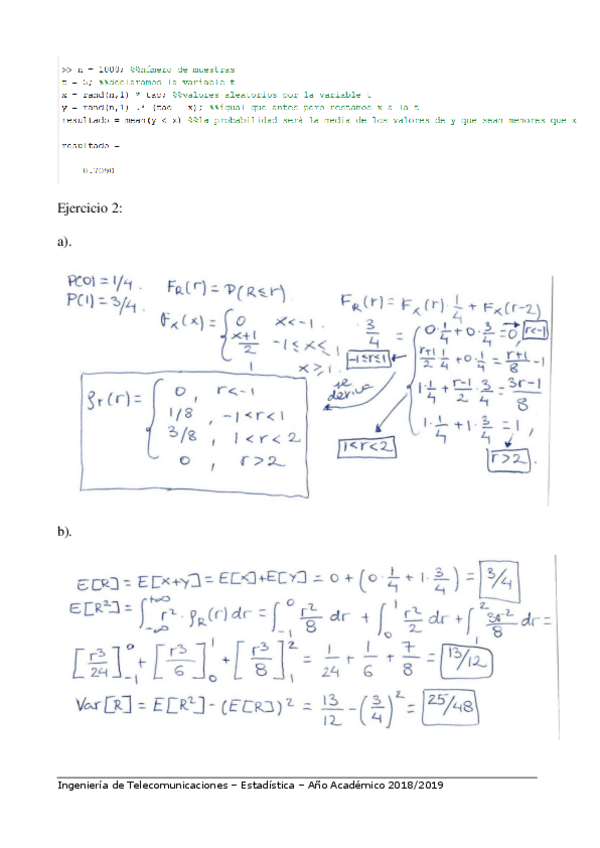 >> n = 1000; %%número de muestras
t = 5; %%declaramos la variable t
x = rand(n,1) * tao; %%valores aleatorios por la variable t
y = rand(n,1) .* (tao - x); %%igual que antes pero restamos x a la t
resultado = mean(y < x) %%la probabilidad será la media de los valores de y que sean menores que x
resultado =
0.7090
Ejercicio 2:
a).
P(0) = 1/4.
P(1) = 3/4.
F_R(r) = P(R ≤ r).
F_X(x) = { 0 x < -1.
x+1/2 -1 ≤ x ≤ 1
1 x ≥ 1.
F_R(r) = F_X(r) · 1/4 + F_X(r-2)
3/4 = { 0·1/4 + 0·3/4 = 0, r<-1
-1≤r≤1 r+1/2 1/4 + 0·1/4 = r+1/8 -1
1·1/4 + r-1/2 · 3/4 = 3r-1/8
1·1/4 + 1·3/4 = 1,
1<r<2
r>2.
se deriva
ρr(r) = { 0, r<-1
1/8, -1<r<1
3/8, 1<r<2
0, r>2
b).
E[R] = E[X+Y] = E[X]+E[Y] = 0 + (0·1/4 + 1·3/4) = 3/4
E[R²] = ∫_{-∞}^{+∞} r²·ρ_R(r) dr = ∫_{-1}^{0} r²/8 dr + ∫_{0}^{1} r²/2 dr + ∫_{1}^{2} 3r²/8 dr =
[r³/24]_{-1}^{0} + [r³/6]_{0}^{1} + [r³/8]_{1}^{2} = 1/24 + 1/6 + 7/8 = 13/12
Var[R] = E[R²] - (E[R])² = 13/12 - (3/4)² = 25/48
Ingeniería de Telecomunicaciones – Estadística – Año Académico 2018/2019